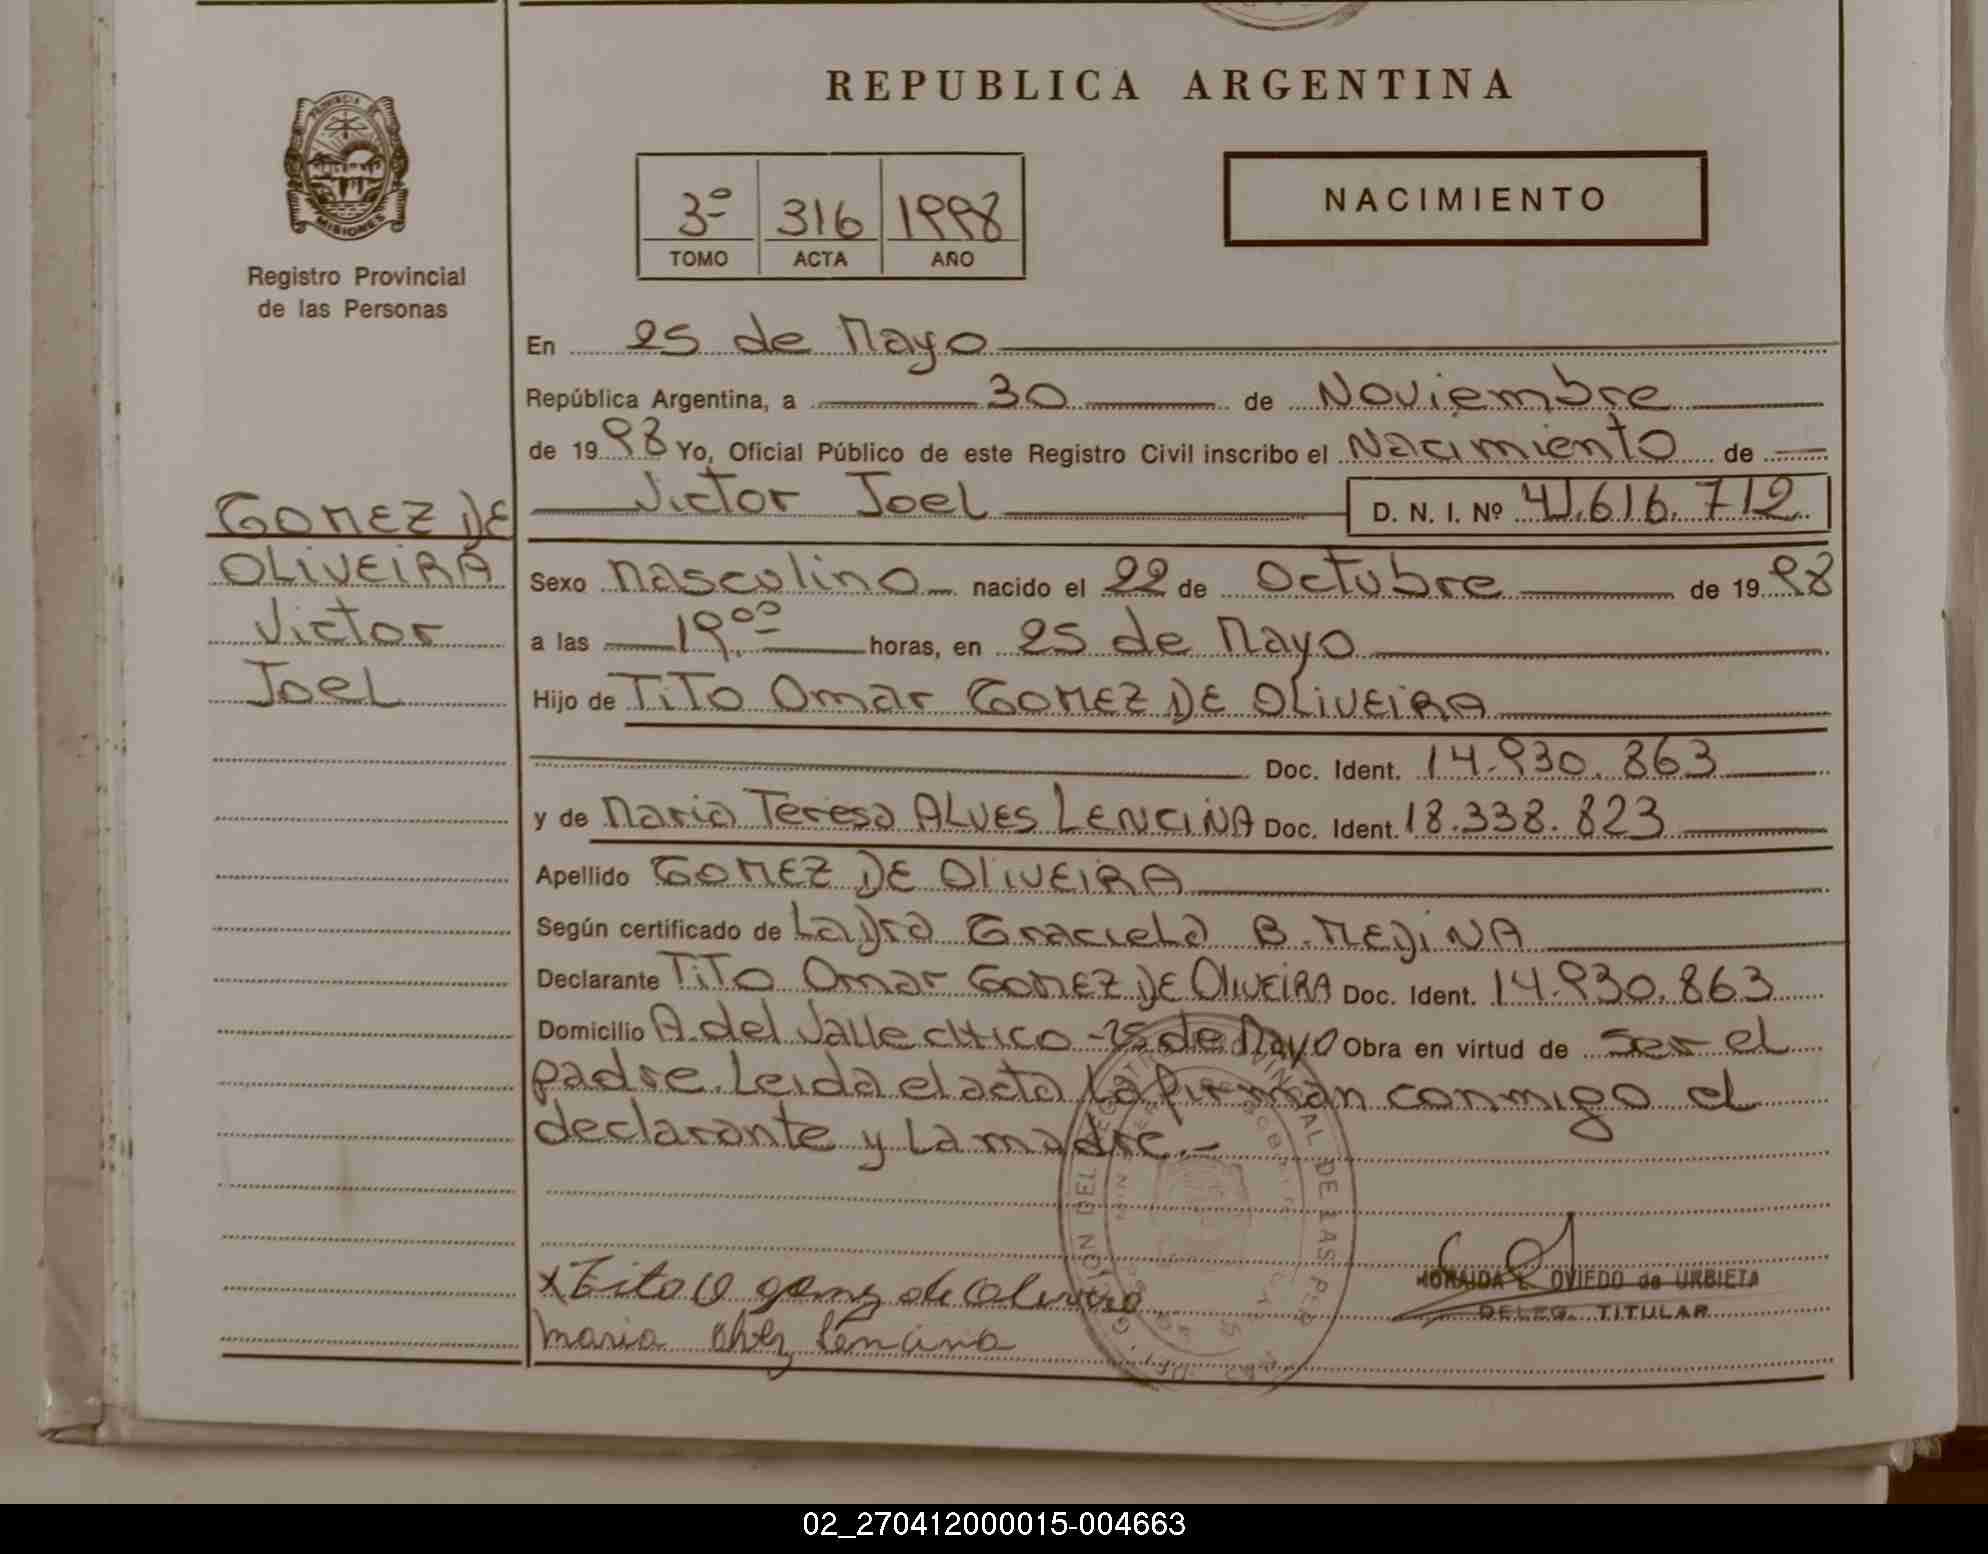 REPUBLICA ARGENTINA
PROVINCIA DE
MISIONES
Registro Provincial
de las Personas
3º 316 1998
TOMO ACTA AÑO
NACIMIENTO
En 25 de Mayo
República Argentina, a 30 de Noviembre
de 1998 Yo, Oficial Público de este Registro Civil inscribo el Nacimiento de
Victor Joel D. N. I. Nº 41.616.712
GOMEZ DE
OLIVEIRA
Victor
Joel
Sexo Masculino nacido el 22 de Octubre de 1998
a las 19,00 horas, en 25 de Mayo
Hijo de Tito Omar GOMEZ DE OLIVEIRA
Doc. Ident. 14.930.863
y de Maria Teresa ALVES LENCINA Doc. Ident. 18.338.823
Apellido GOMEZ DE OLIVEIRA
Según certificado de La Dra Graciela B. MEDINA
Declarante Tito Omar GOMEZ DE OLIVEIRA Doc. Ident. 14.930.863
Domicilio A. del Valle chico - 25 de Mayo Obra en virtud de ser el
padre. Leida el acta la firman conmigo el
declarante y la madre.-
DE LAS PER
X Tito O gomz de Oliveira
OVIEDO de URBIETA
DELEG. TITULAR
Maria Lencina
02_270412000015-004663